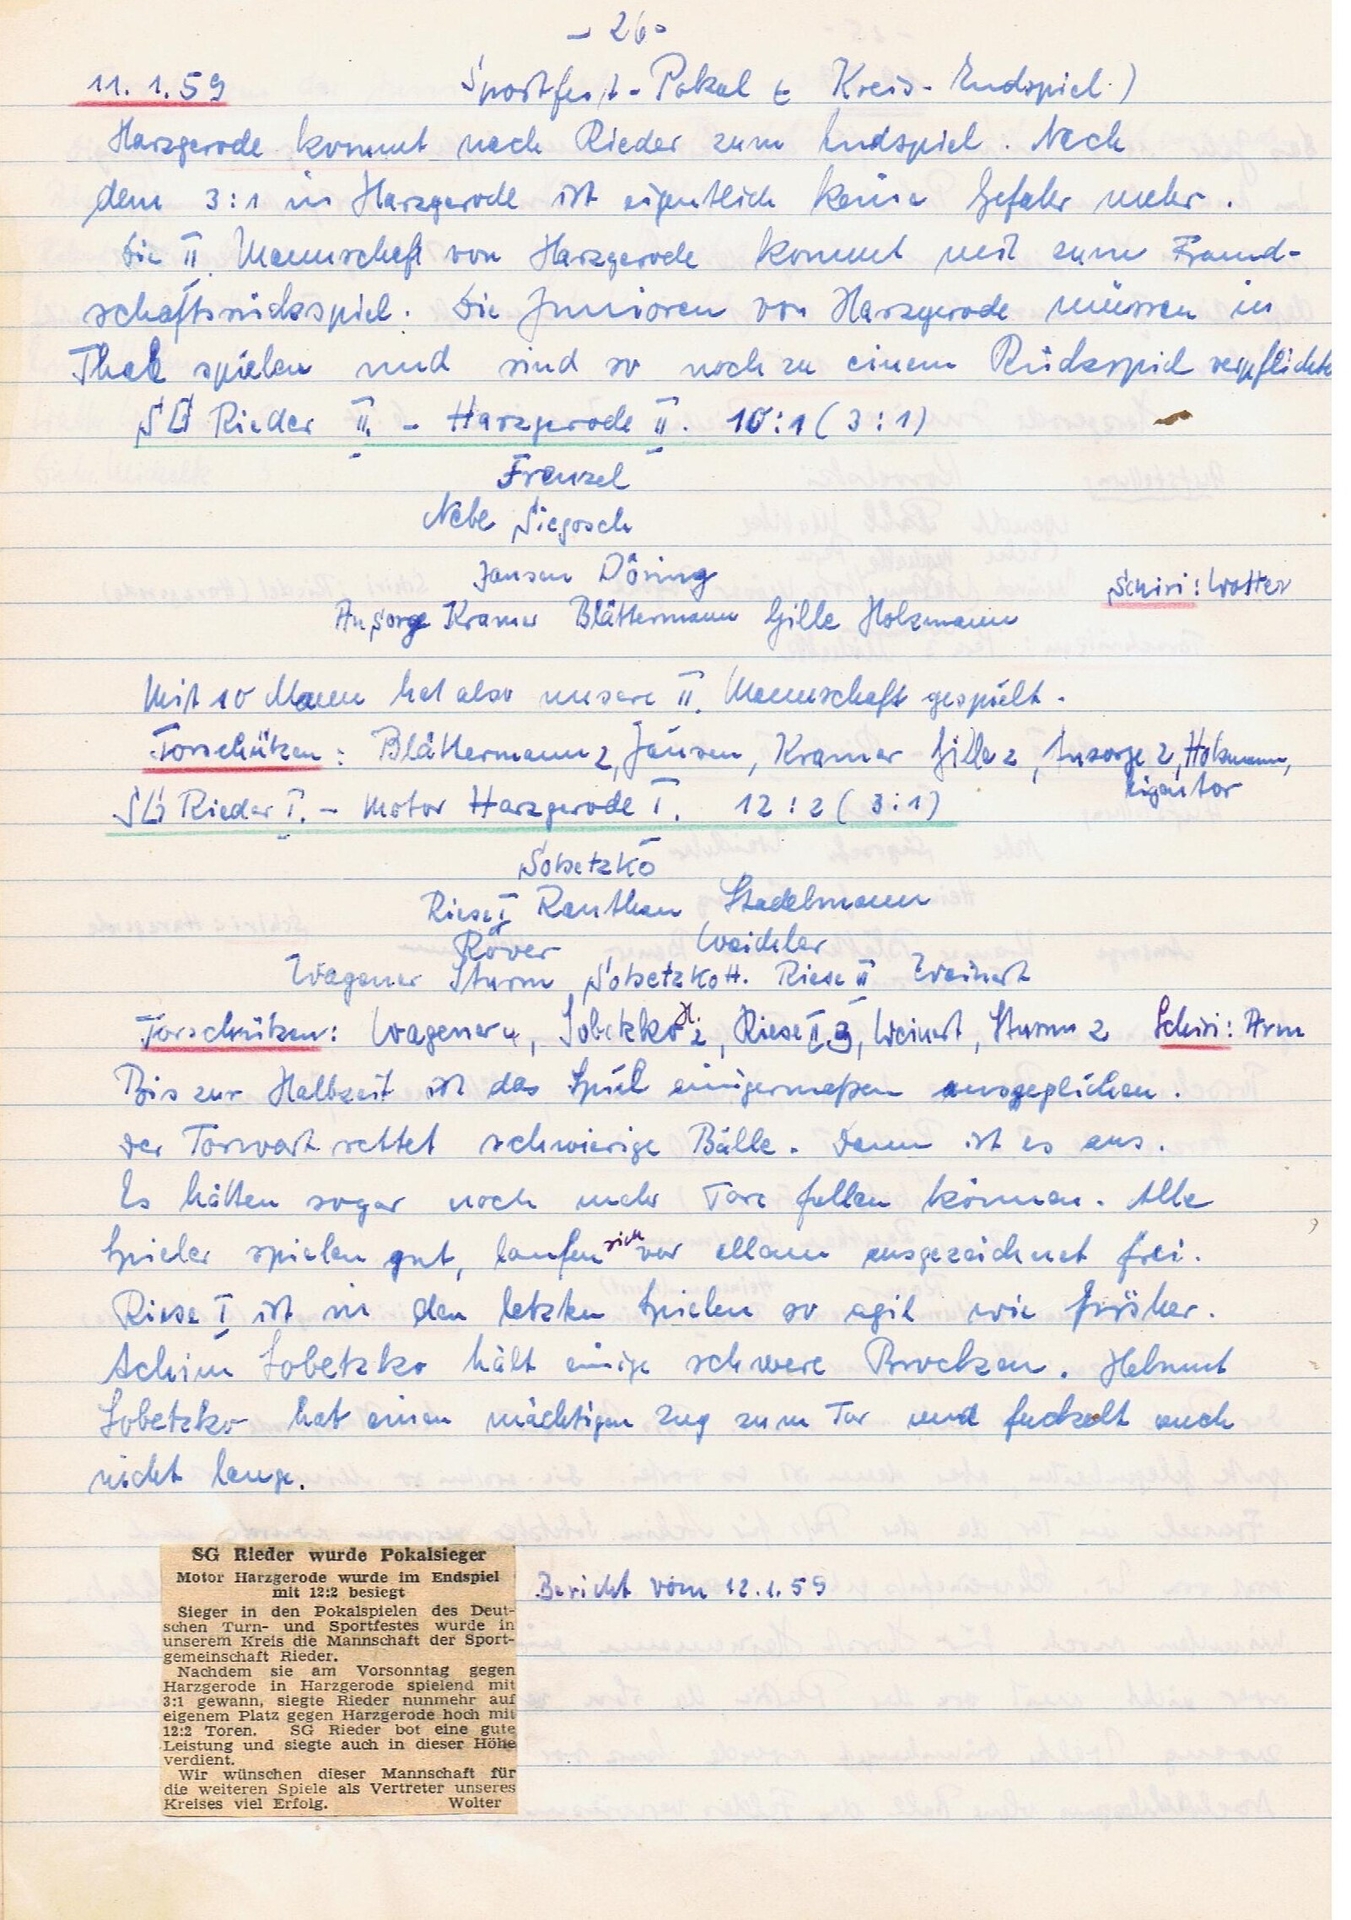 - 26 -
11.1.59 Sportfest-Pokal ( Kreis-Endspiel )
Harzgerode kommt nach Rieder zum Endspiel. Nach
dem 3:1 in Harzgerode ist eigentlich keine Gefahr mehr.
Die II. Mannschaft von Harzgerode kommt mit zum Freund-
schaftsrückspiel. Die Junioren von Harzgerode müssen in
Thale spielen und sind so noch zu einem Rückspiel verpflichtet
SG Rieder II. - Harzgerode II 10:1 ( 3:1)
Frenzel
Nebe Siegosch
Jansen Döring
Schiri: Wolter
Ansorge Kramer Blättermann Gille Holzmann
Mit 10 Mann hat also unsere II. Mannschaft gespielt.
Torschützen: Blättermann 2, Jansen, Kramer Gille 2, Ansorge 2, Holzmann,
Eigentor
SG Rieder I. - Motor Harzgerode I. 12:2 ( 3:1)
Sobetzko
Riese I Rauthan Stadelmann
Röver Weichler
Wagener Sturm Sobetzko H. Riese II Weinert
Torschützen: Wagener 4, Sobetzko H. 2, Riese II 3, Weinert, Sturm 2 Schiri: Arm
Bis zur Halbzeit ist das Spiel einigermaßen ausgeglichen.
Der Torwart rettet schwierige Bälle. Dann ist es aus.
Es hätten sogar noch mehr Tore fallen können. Alle
Spieler spielen gut, laufen sich vor allem ausgezeichnet frei.
Riese I ist in den letzten Spielen so agil wie früher.
Achim Sobetzko hält einige schwere Brocken. Helmut
Sobetzko hat einen mächtigen Zug zum Tor und fackelt auch
nicht lange.
SG Rieder wurde Pokalsieger
Motor Harzgerode wurde im Endspiel
mit 12:2 besiegt
Bericht vom 12.1.59
Sieger in den Pokalspielen des Deut-
schen Turn- und Sportfestes wurde in
unserem Kreis die Mannschaft der Sport-
gemeinschaft Rieder.
Nachdem sie am Vorsonntag gegen
Harzgerode in Harzgerode spielend mit
3:1 gewann, siegte Rieder nunmehr auf
eigenem Platz gegen Harzgerode hoch mit
12:2 Toren. SG Rieder bot eine gute
Leistung und siegte auch in dieser Höhe
verdient.
Wir wünschen dieser Mannschaft für
die weiteren Spiele als Vertreter unseres
Kreises viel Erfolg. Wolter